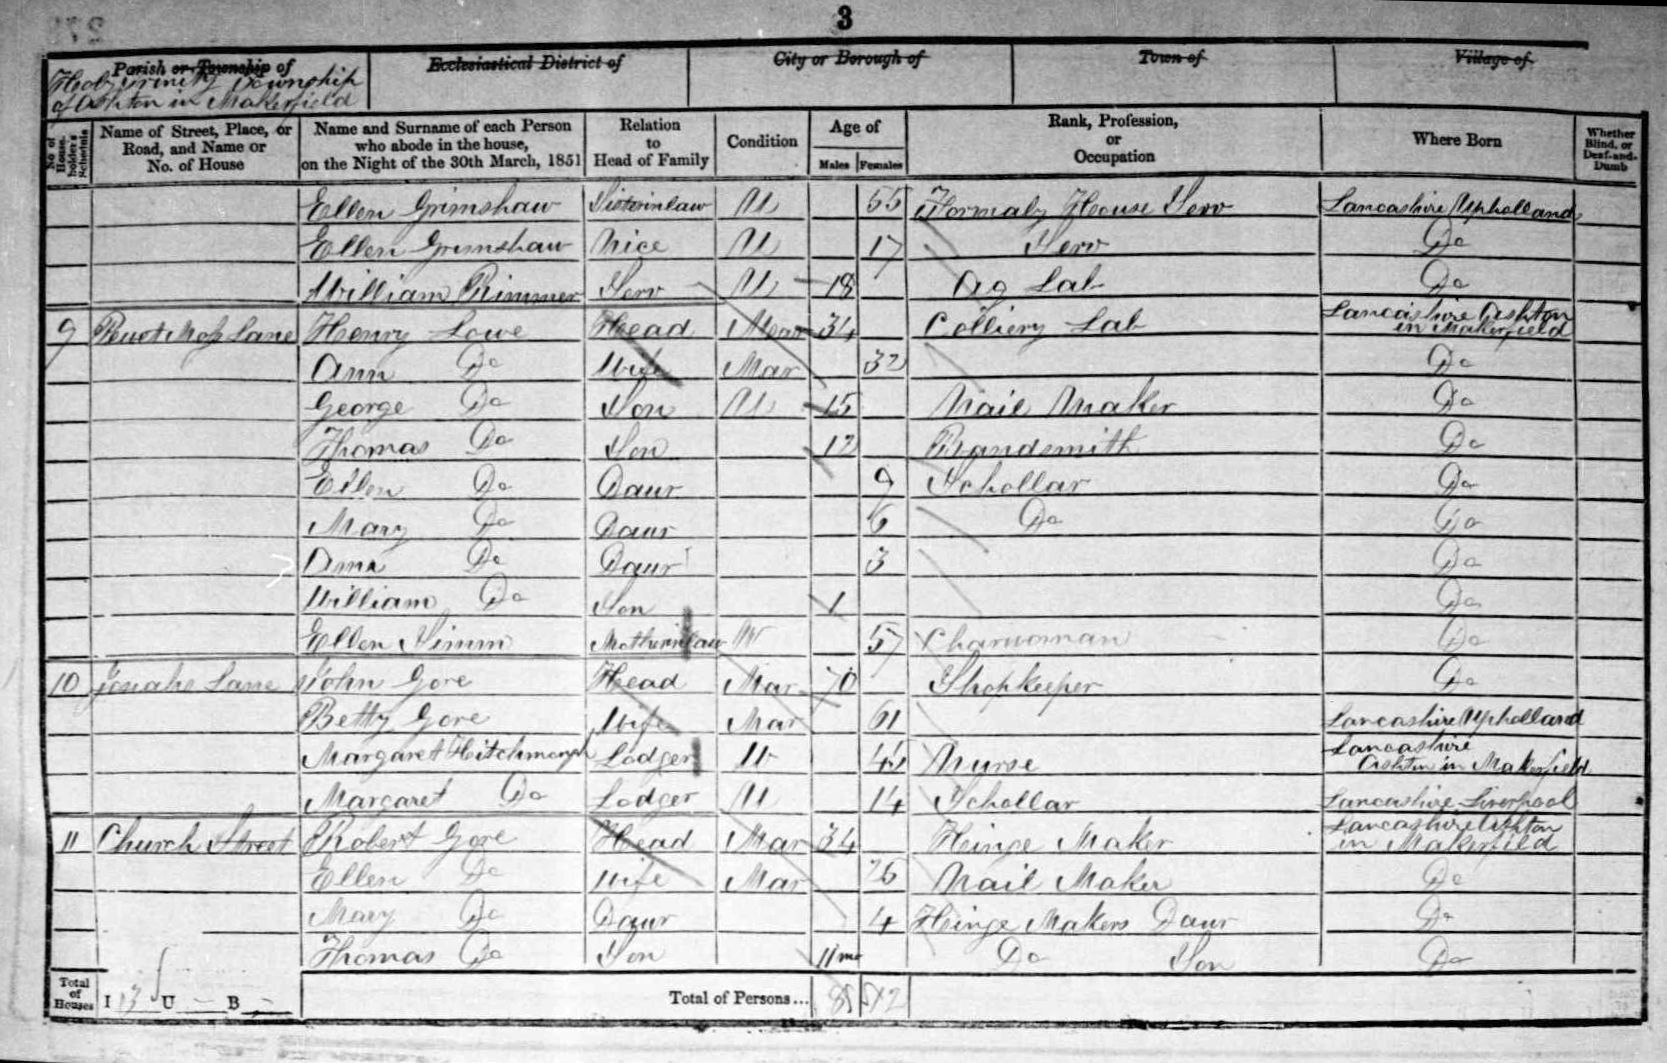 3
Parish or Township of Ecclesiastical District of City or Borough of Town of Village of
Holy Trinity Township
of Ashton in Makerfield
No. of House-holder's Schedule
Name of Street, Place, or Road, and Name or No. of House
Name and Surname of each Person who abode in the house, on the Night of the 30th March, 1851
Relation to Head of Family
Condition
Age of
Males Females
Rank, Profession, or Occupation
Where Born
Whether Blind, or Deaf-and-Dumb
Ellen Grimshaw Sisterinlaw U 55 Formaly House Serv Lancashire Upholland
Ellen Grimshaw Nice U 17 Serv Do
William Rimmer Serv U 18 Ag Lab Do
9 Moss Lane Henry Lowe Head Mar 34 Colliery Lab Lancashire Ashton in Makerfield
Ann Do Wife Mar 32 Do
George Do Son U 15 Nail Maker Do
Thomas Do Son 12 Do
Ellen Do Daur 9 Schollar Do
Mary Do Daur 6 Do Do
Do Daur 3 Do
William Do Son 1 Do
Ellen Simm Motherinlaw W 57 Charwoman Do
10 Josiahs Lane John Gore Head Mar 70 Shopkeeper Do
Betty Gore Wife Mar 61 Lancashire Upholland
Margaret Hitchmough Lodger W Nurse Lancashire Ashton in Makerfield
Margaret Do Lodger U 14 Schollar Lancashire Liverpool
11 Church Street Robert Gore Head Mar 34 Hinge Maker Lancashire Ashton in Makerfield
Ellen Do Wife Mar 26 Nail Maker Do
Mary Do Daur 4 Hinge Makers Daur Do
Thomas Do Son 11 mo Do Son Do
Total of Houses I 3 U — B — Total of Persons... 8 12